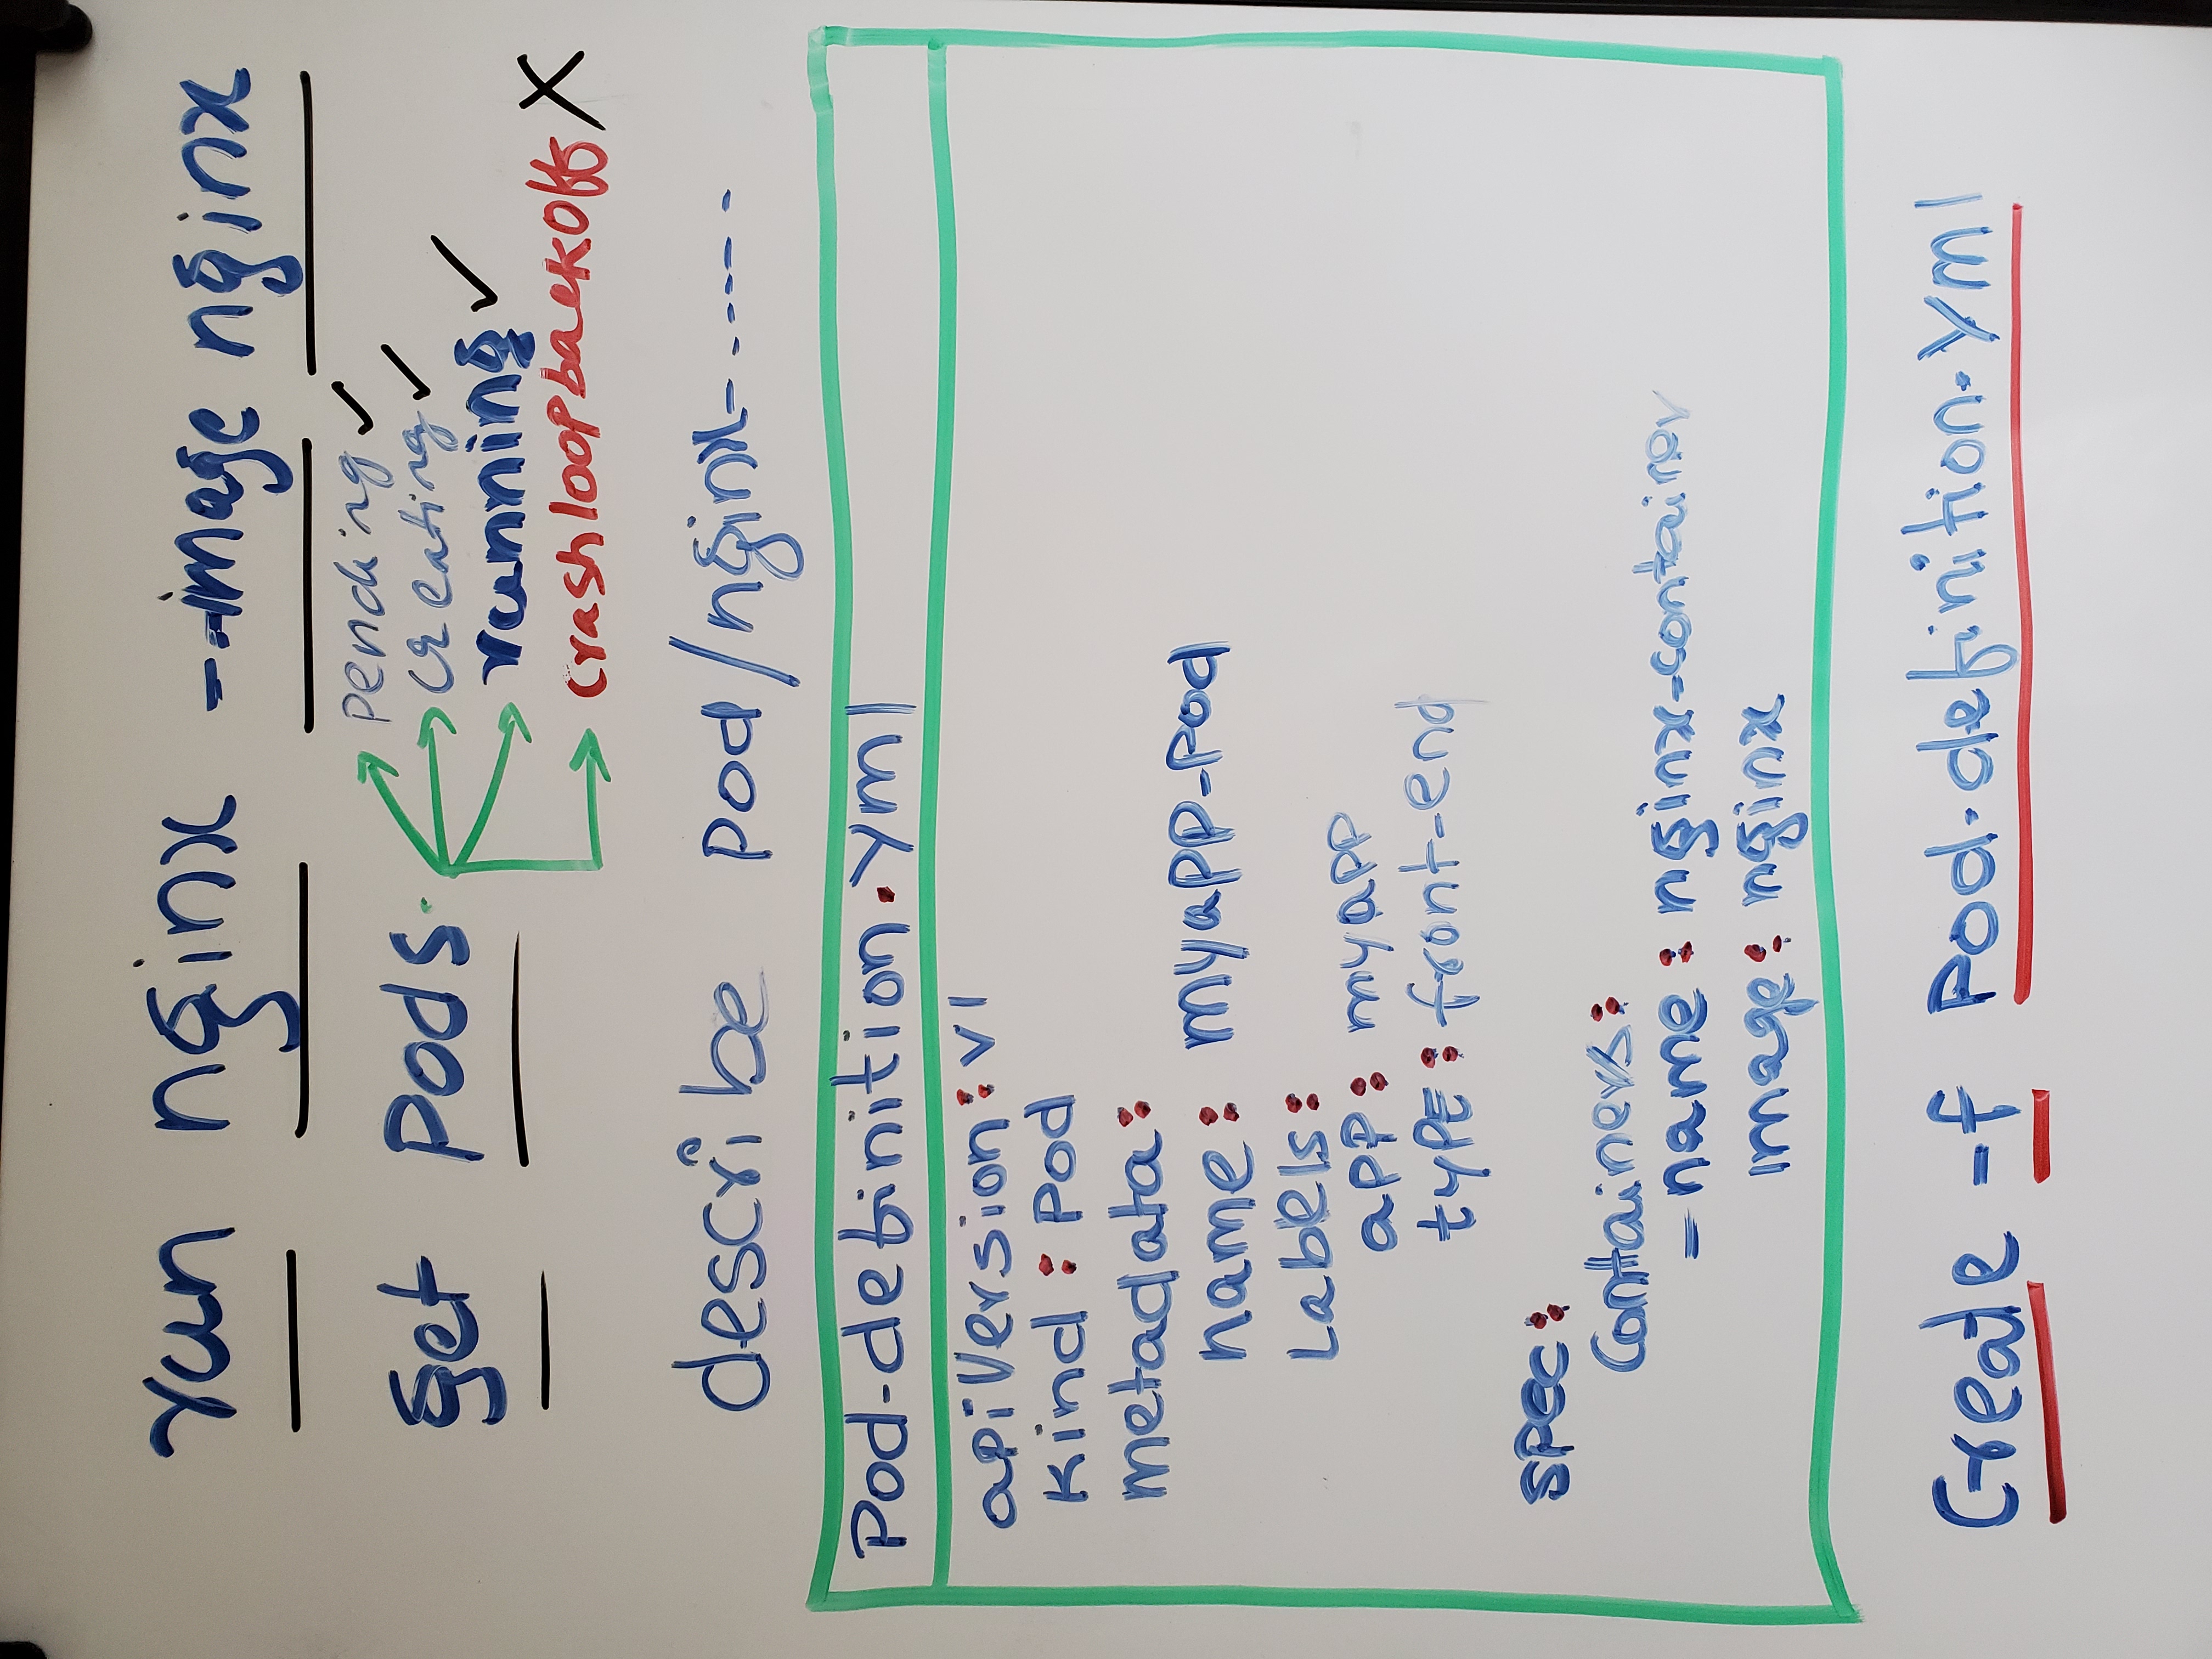 run nginx --image nginx
get pods
pending ✓
creating ✓
running ✓
crashloopbackoff X
describe pod/nginx-.-----
Pod-definition.yml
apiVersion: v1
kind: Pod
metadata:
name: myapp-pod
Labels:
app: myapp
type: front-end
spec:
Containers:
- name: nginx-container
image: nginx
Create -f Pod-definition.yml